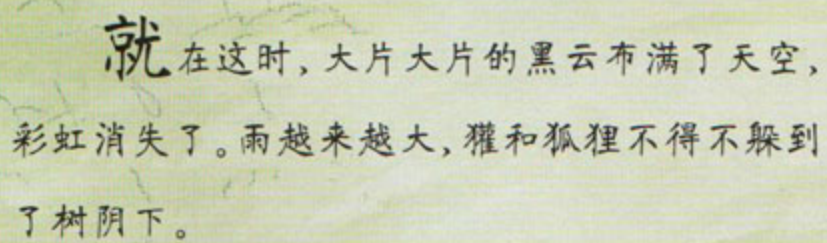 就在这时，大片大片的黑云布满了天空，
彩虹消失了。雨越来越大，獾和狐狸不得不躲到
了树阴下。